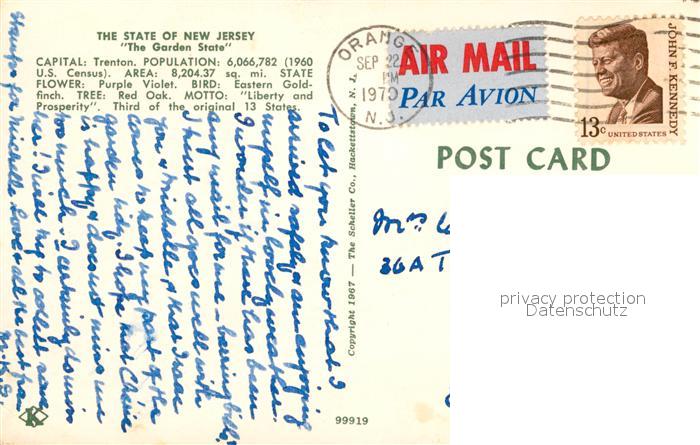 THE STATE OF NEW JERSEY
"The Garden State"
CAPITAL: Trenton. POPULATION: 6,066,782 (1960
U.S. Census). AREA: 8,204.37 sq. mi. STATE
FLOWER: Purple Violet. BIRD: Eastern Gold-
finch. TREE: Red Oak. MOTTO: "Liberty and
Prosperity". Third of the original 13 States.
ORANGE
SEP 22
PM
1970
N.J.
AIR MAIL
PAR AVION
JOHN F. KENNEDY
13c UNITED STATES
POST CARD
To let you know that I
arrived safely & am enjoying
myself in lovely weather.
I wonder if there has been
any mail for me - barring bills!
I trust all goes well with
you & Michelle & that Isaac
comes to keep my part of the
garden tidy. I hope that Chérie
is happy & does not miss me
too much. I certainly do miss
her! I will try to collect some
stamps for Michelle. Love & all the best from
M.K.S.
Copyright 1967 — The Scheller Co., Hackettstown, N. J.
Mrs
36A T
K
99919
privacy protection
Datenschutz